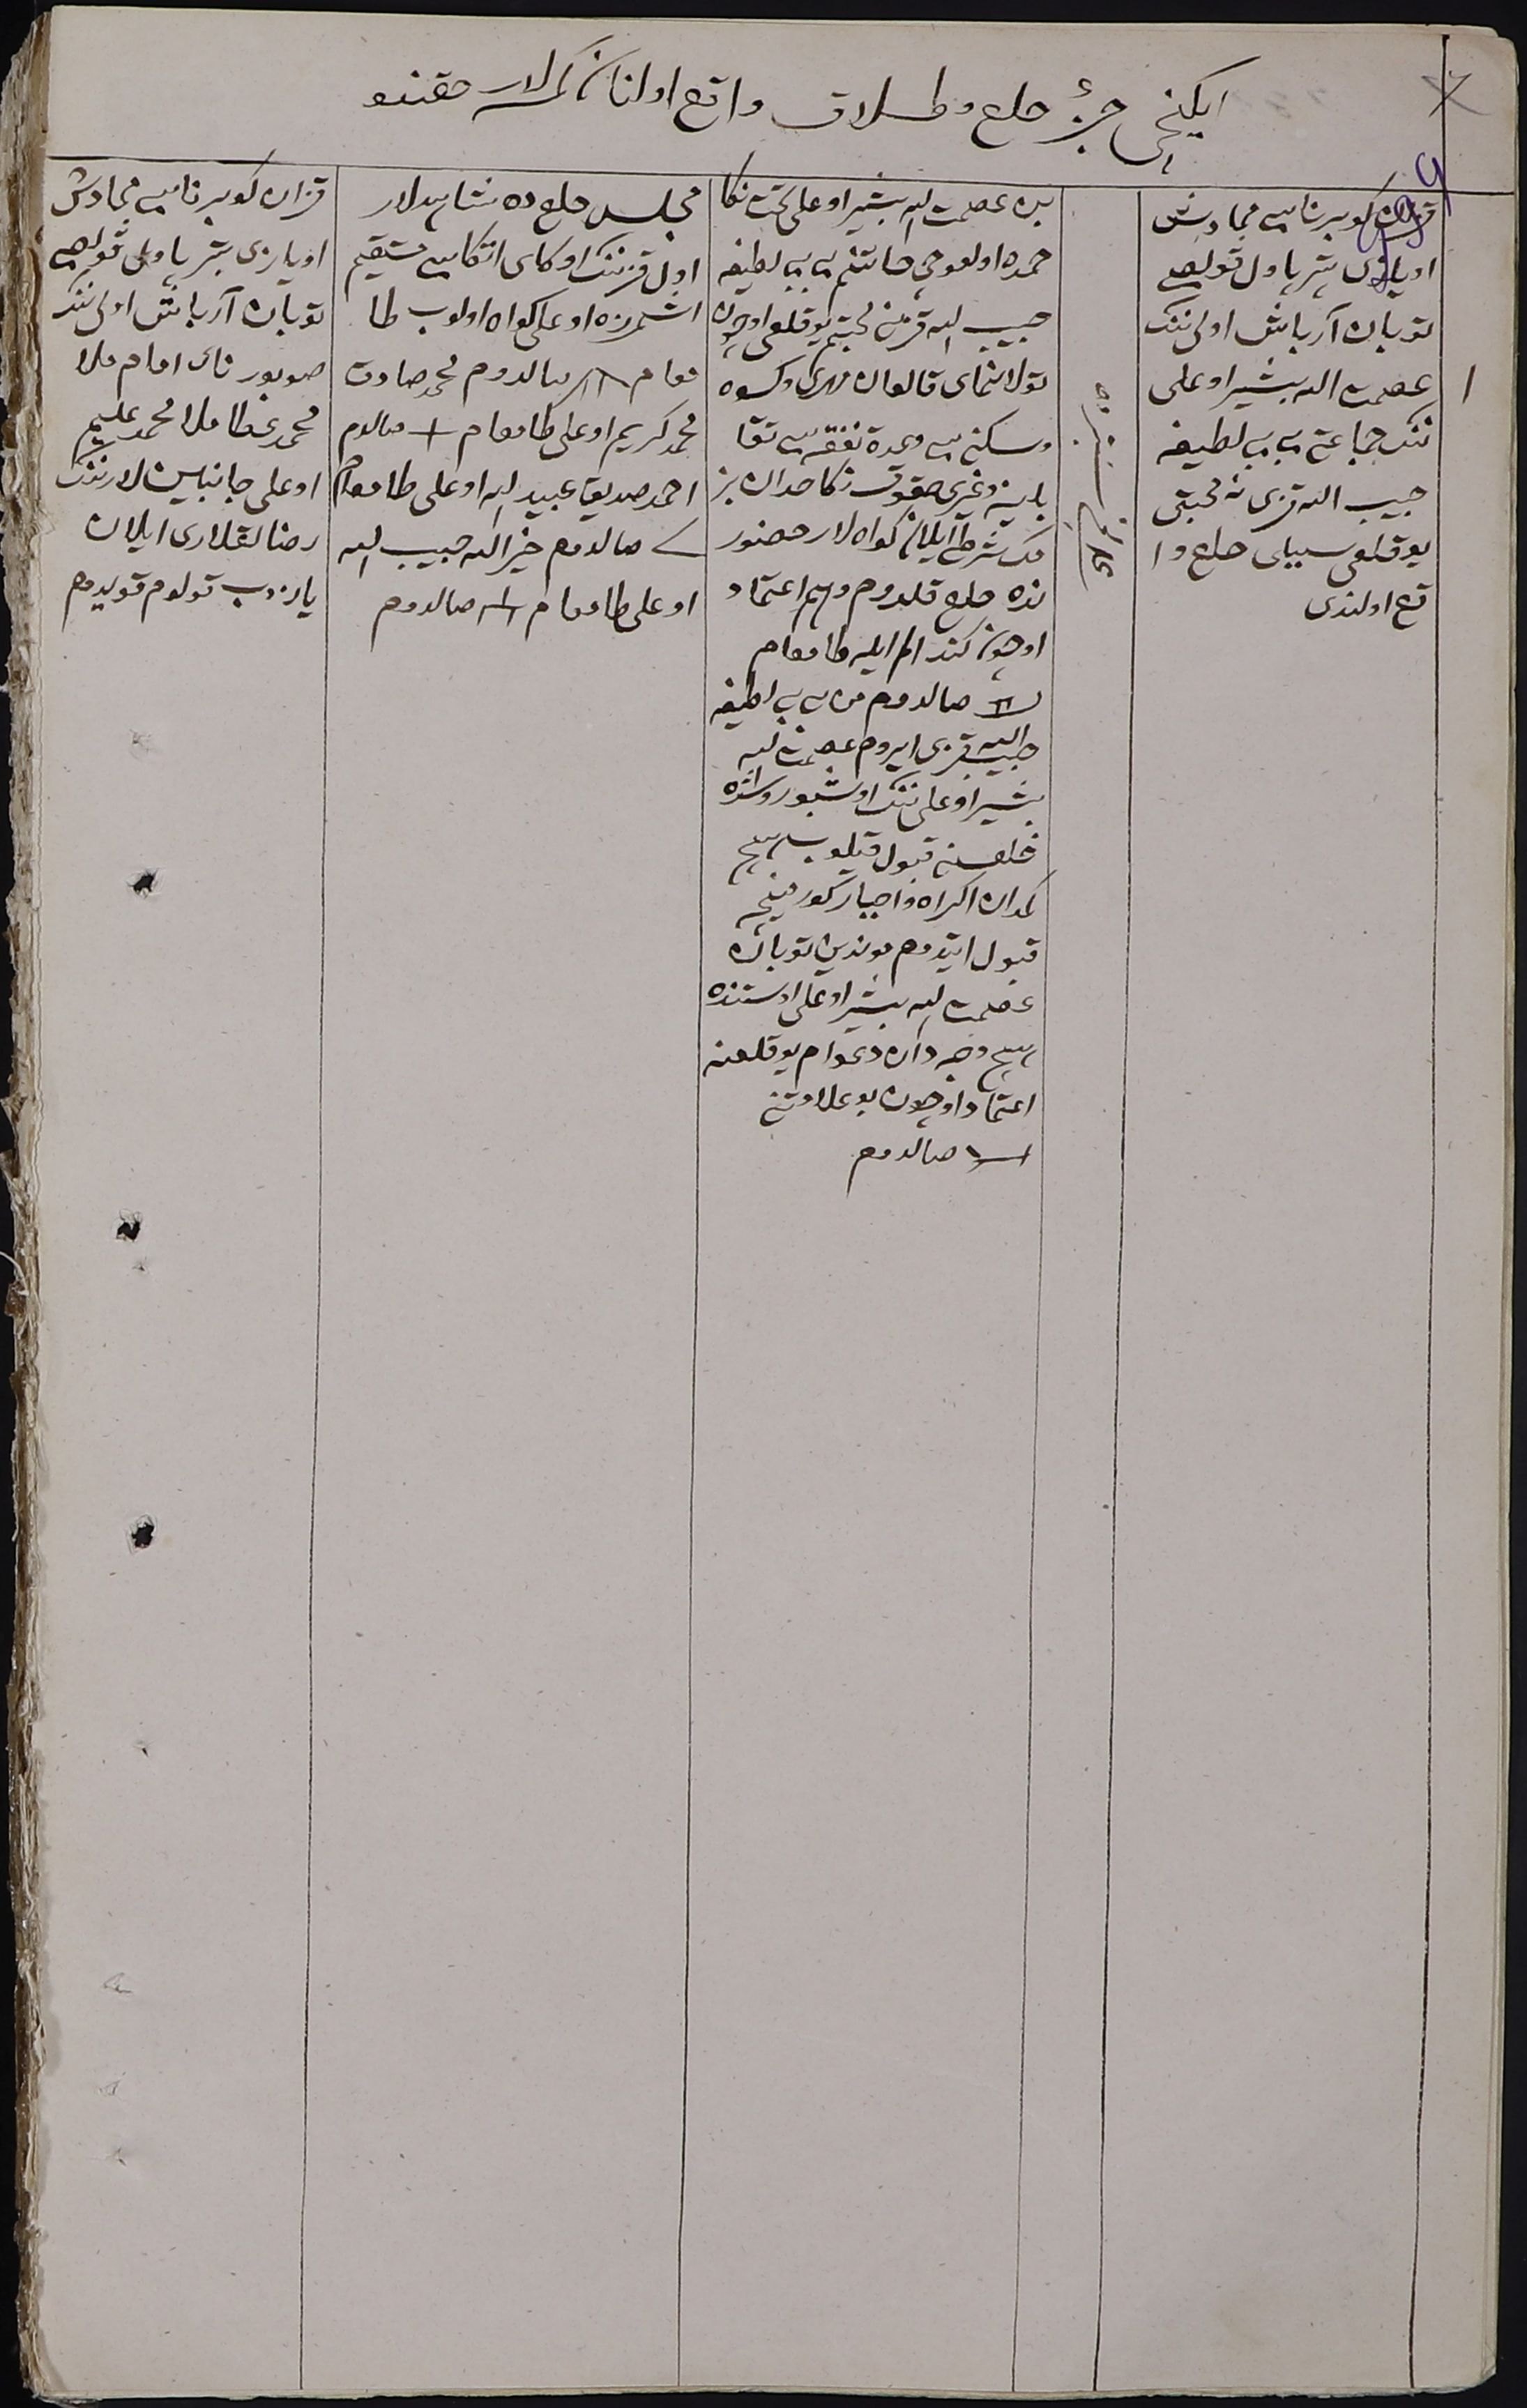 ایکنچی جزؤ خلع و طلاق واقع اولنان کمسه لار حقنده
١
قزان کوبیرناسی مجادش
اویازی شرباول قولصی
توبان آرباش اولی ننک
عصمت الله بشیر اوغلی
ننک جماعتی بی بی لطیفه
حبیب الله قزی نه محبتی
یوقلغی سببلی خلع وا
قع اولندی
بن عصمت الله بشیر اوغلی تحت نکا
حمده اولغوچی خاتنم بی بی لطیفه
حبیب الله قزینی محبتم یوقلغی اوچون
تولانمای قالغان مهری وکسوه
وسکنی سی وعدة نفقه سی تقا
بلینه وغیری حقوق نکاحدان بز
مک شرطی ایلان کواه لار حضور
نده خلع قلدوم وهم اعتماد
اوچون کند الم ایله طامغام
صالدوم من بی بی لطیفه
حبیب الله قزی ایردم عصمت الله
بشیر اوغلی ننک اوشبو روشده
خلعسنی قبول قیلوب هیچ
کمدان اکراه واجبار کورمینچه
قبول ایتدوم موندین توبان
عصمت الله بشیر اوغلی اوستنده
هیچ وجه دان دعوام یوقلغنه
اعتماد اوچون بو علامتنی
صالدوم
مجلس خلع ده شاهدلار
اول قزننک اوکای اتکاسی مستقیم
اشمرزه اوغلی کواه اولوب طا
مغام صالدوم محمد صادق
محمد کریم اوغلی طامغام صالدوم
احمد صدیق عبید الله اوغلی طامغام
صالدوم خیر الله حبیب الله
اوغلی طامغام صالدوم
قزان کوبیرناسی مجادش
اویازی شرباول قولصی
توبان آرباش اولی ننک
صوبورنای امام ملا
محمد عطا ملا محمد علیم
اوغلی جانبین لارننک
رضالقلاری ایلان
یازوب قولوم قویدوم